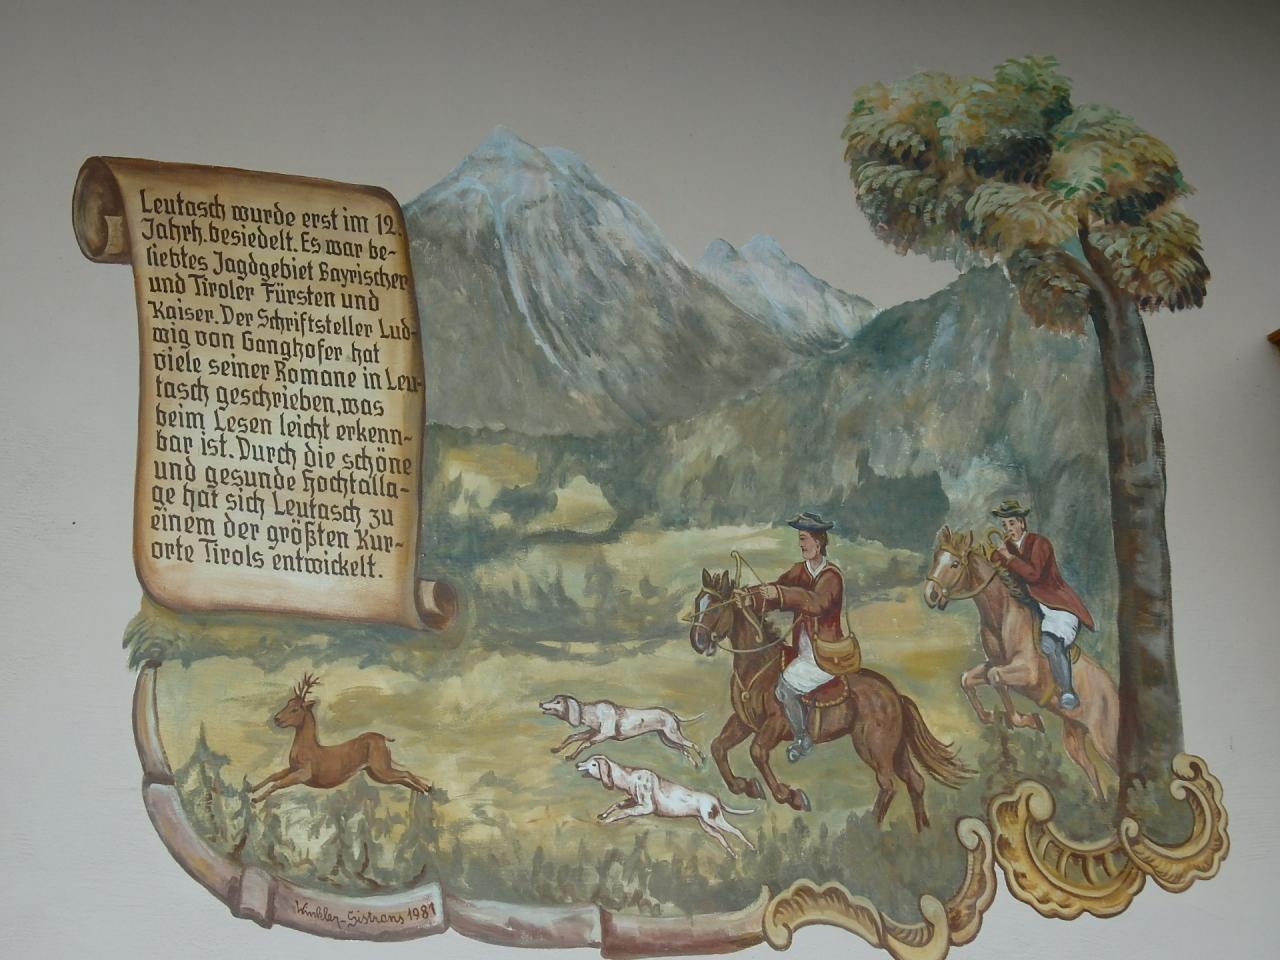 Leutasch wurde erst im 12.
Jahrh. besiedelt. Es war be-
liebtes Jagdgebiet Bayrischer
und Tiroler Fürsten und
Kaiser. Der Schriftsteller Lud-
wig von Ganghofer hat
viele seiner Romane in Leu-
tasch geschrieben, was
beim Lesen leicht erkenn-
bar ist. Durch die schöne
und gesunde Hochtalla-
ge hat sich Leutasch zu
einem der größten Kur-
orte Tirols entwickelt.
Winkler-Sistrans 1981